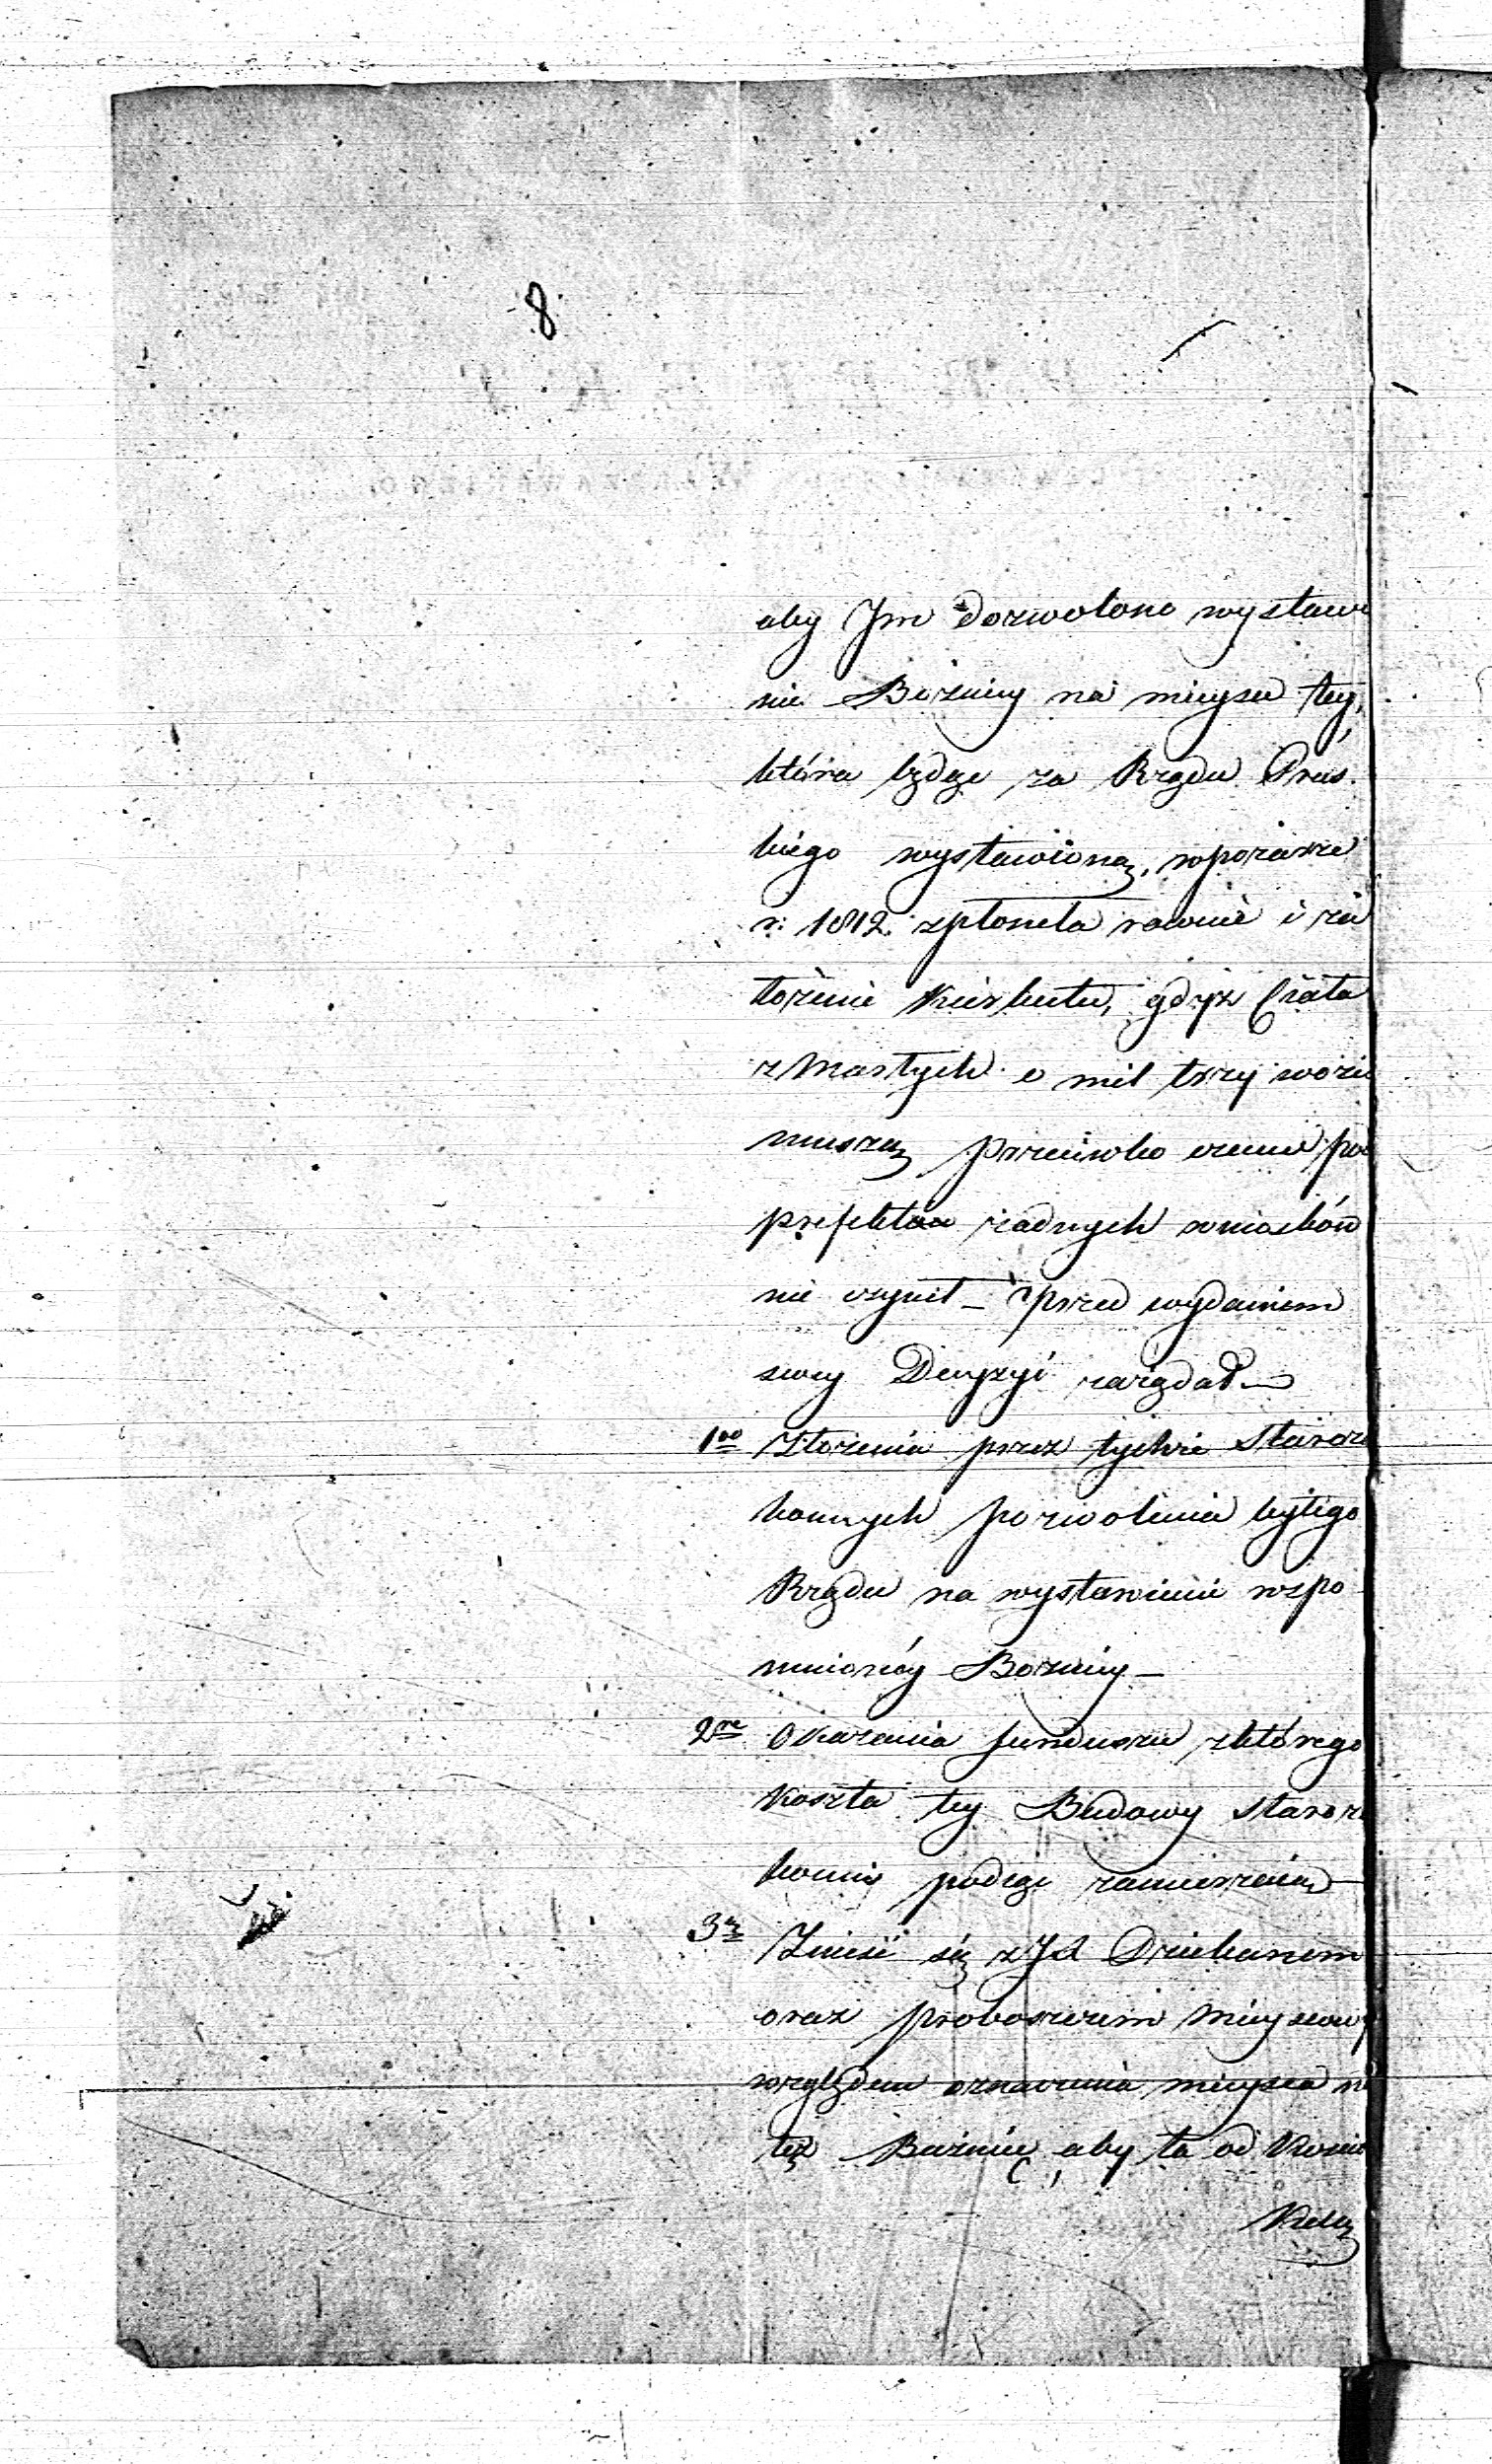 8
aby Im dozwolono wystawie
nie Bożnicy na mieyscu tey,
która będąc za Rządu Prus
kiego wystawioną, w pożarze
r: 1812. spłoneła rownie i za
łożenie Kierkutu, gdyż Ciała
zmarłych o mil trzy wozić
muszą przeciwko czemu pod
prefekt żadnych wniosków
nie czynił – przed wydaniem
swey Decyzyi zażądał –
1mo Złożenia przez tychże Staroza
konnych pozwolenia byłego
Rządu na wystawienie wspo
mnionéy Bożnicy –
2re Okazania funduszu z którego
Koszta tey Budowy Staroza
konni podiąć zamierzaią –
3o Znieść się z Jd Dziekanem
oraz proboszczem mieyscowym
względem oznaczenia mieysca na
też Bożnicę, aby ta od Kościo